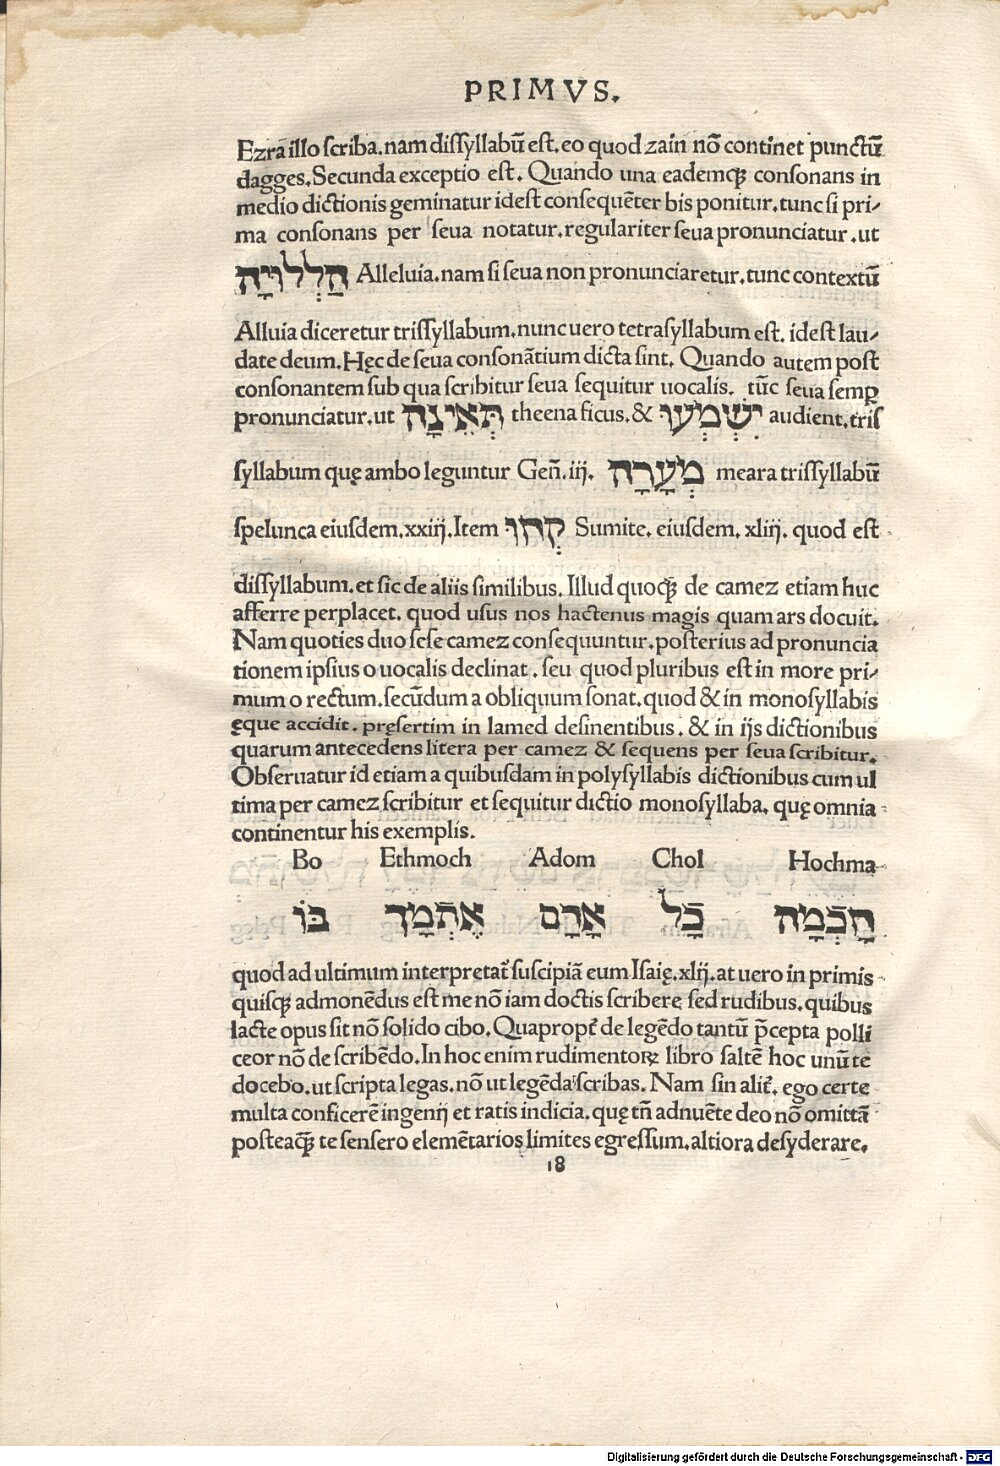 PRIMVS.
Ezra illo scriba. nam dissyllabũ est. eo quod zain nõ continet punctũ
dagges. Secunda exceptio est. Quando una eademqꝫ consonans in
medio dictionis geminatur idest consequẽter bis ponitur. tunc si pri/
ma consonans per seua notatur. regulariter seua pronunciatur. ut
הַלְלוּיָה Alleluia. nam si seua non pronunciaretur. tunc contextũ
Alluia diceretur trissyllabum. nunc uero tetrasyllabum est. idest lau/
date deum. Hęc de seua consonãtium dicta sint. Quando autem post
consonantem sub qua scribitur seua sequitur uocalis. tũc seua semꝑ
pronunciatur. ut תְּאֵינָה theena ficus. & יִשְׁמְעוּ audient. tris
syllabum quę ambo leguntur Geñ. iij. מְעָרָה meara trissyllabũ
spelunca eiusdem. xxiij. Item קְחוּ Sumite. eiusdem. xliij. quod est
dissyllabum. et sic de aliis similibus. Illud quoqꝫ de camez etiam huc
afferre perplacet. quod usus nos hactenus magis quam ars docuit.
Nam quoties duo sese camez consequuntur. posterius ad pronuncia
tionem ipsius o uocalis declinat. seu quod pluribus est in more pri/
mum o rectum. secũdum a obliquum sonat. quod & in monosyllabis
ęque accidit. pręsertim in lamed desinentibus. & in ijs dictionibus
quarum antecedens litera per camez & sequens per seua scribitur.
Obseruatur id etiam a quibusdam in polysyllabis dictionibus cum ul
tima per camez scribitur et sequitur dictio monosyllaba. quę omnia
continentur his exemplis.
Bo Ethmoch Adom Chol Hochma
חָכְמָה כָּל אָדָם אֶתְמָךְ בּוֹ
quod ad ultimum interpretat᷑ suscipiã eum Isaię. xlij. at uero in primis
quisqꝫ admonẽdus est me nõ iam doctis scribere sed rudibus. quibus
lacte opus sit nõ solido cibo. Quapropt᷑ de legẽdo tantũ p̃cepta polli
ceor nõ de scribẽdo. In hoc enim rudimentoꝝ libro saltẽ hoc unũ te
docebo. ut scripta legas. nõ ut legẽda scribas. Nam sin alit᷑. ego certe
multa conficerẽ ingenij et ratis indicia. quę tñ adnuẽte deo nõ omittã
posteaqꝫ te sensero elemẽtarios limites egressum. altiora desyderare.
18
Digitalisierung gefördert durch die Deutsche Forschungsgemeinschaft - DFG